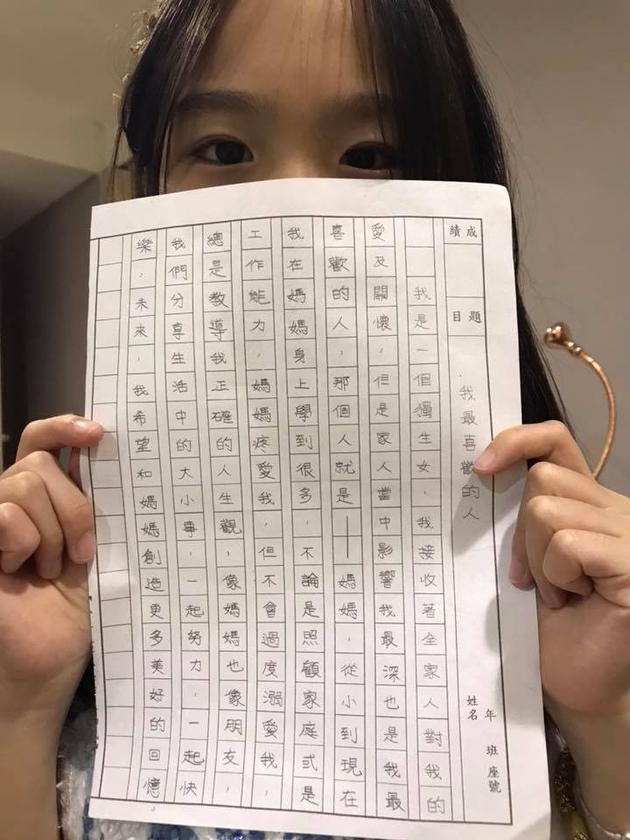 成績
題目
我最喜歡的人
年 班 座號
姓名
我是一個獨生女，我接收著全家人對我的
愛及關懷，但是家人當中影響我最深也是我最
喜歡的人，那個人就是——媽媽，從小到現在
我在媽媽身上學到很多，不論是照顧家庭或是
工作能力，媽媽疼愛我，但不會過度溺愛我，
總是教導我正確的人生觀，像媽媽也像朋友，
我們分享生活中的大小事，一起努力，一起快
樂，未來，我希望和媽媽創造更多美好的回憶。